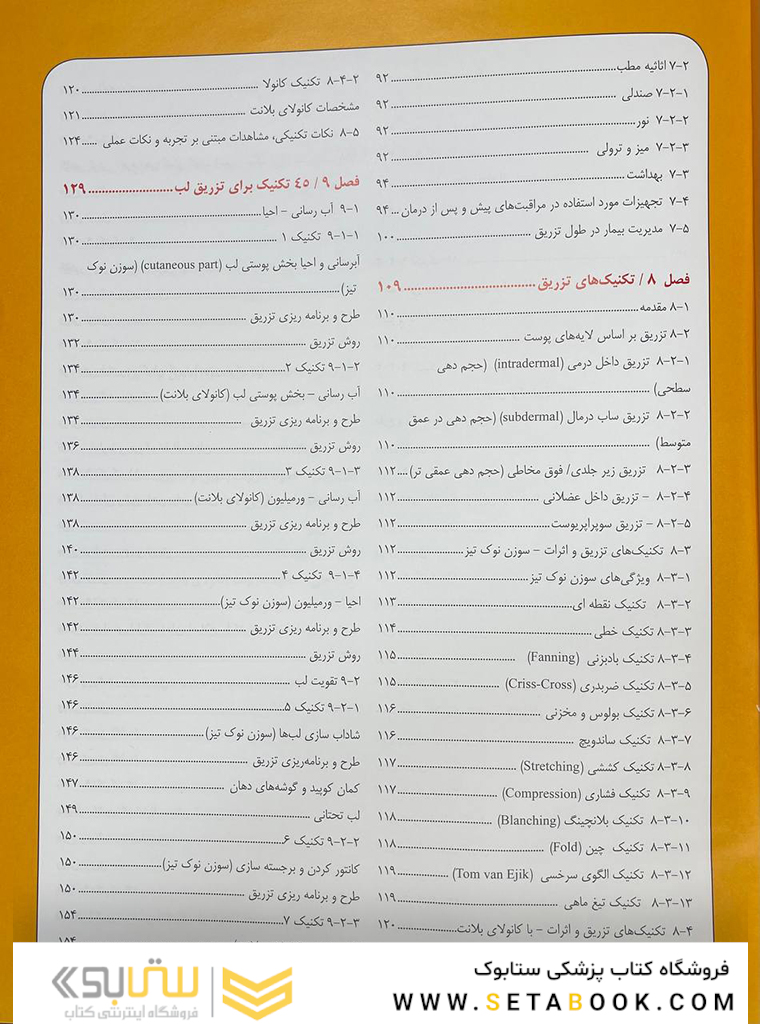 ۷-۲ اثاثیه مطب ۹۲
۷-۲-۱ صندلی ۹۲
۷-۲-۲ نور ۹۲
۷-۲-۳ میز و ترولی ۹۲
۷-۳ بهداشت ۹۴
۷-۴ تجهیزات مورد استفاده در مراقبت‌های پیش و پس از درمان ۹۴
۷-۵ مدیریت بیمار در طول تزریق ۱۰۰
فصل ۸ / تکنیک‌های تزریق ۱۰۹
۸-۱ مقدمه ۱۱۰
۸-۲ تزریق بر اساس لایه‌های پوست ۱۱۰
۸-۲-۱ تزریق داخل درمی (intradermal) (حجم دهی
سطحی) ۱۱۰
۸-۲-۲ تزریق ساب درمال (subdermal) (حجم دهی در عمق
متوسط) ۱۱۰
۸-۲-۳ تزریق زیر جلدی/ فوق مخاطی (حجم دهی عمقی تر) ۱۱۲
۸-۲-۴ - تزریق داخل عضلانی ۱۱۲
۸-۲-۵ - تزریق سوپراپریوست ۱۱۲
۸-۳ تکنیک‌های تزریق و اثرات - سوزن نوک تیز ۱۱۲
۸-۳-۱ ویژگی‌های سوزن نوک تیز ۱۱۲
۸-۳-۲ تکنیک نقطه ای ۱۱۳
۸-۳-۳ تکنیک خطی ۱۱۴
۸-۳-۴ تکنیک بادبزنی (Fanning) ۱۱۵
۸-۳-۵ تکنیک ضربدری (Criss-Cross) ۱۱۵
۸-۳-۶ تکنیک بولوس و مخزنی ۱۱۶
۸-۳-۷ تکنیک ساندویچ ۱۱۶
۸-۳-۸ تکنیک کششی (Stretching) ۱۱۷
۸-۳-۹ تکنیک فشاری (Compression) ۱۱۷
۸-۳-۱۰ تکنیک بلانچینگ (Blanching) ۱۱۸
۸-۳-۱۱ تکنیک چین (Fold) ۱۱۸
۸-۳-۱۲ تکنیک الگوی سرخسی (Tom van Ejik) ۱۱۹
۸-۳-۱۳ تکنیک تیغ ماهی ۱۱۹
۸-۴ تکنیک‌های تزریق و اثرات - با کانولای بلانت ۱۲۰
۸-۴-۲ تکنیک کانولا ۱۲۰
مشخصات کانولای بلانت ۱۲۱
۸-۵ نکات تکنیکی، مشاهدات مبتنی بر تجربه و نکات عملی ۱۲۴
فصل ۹ / ۴۵ تکنیک برای تزریق لب ۱۲۹
۹-۱ آب رسانی - احیا ۱۳۰
۹-۱-۱ تکنیک ۱ ۱۳۰
آبرسانی و احیا بخش پوستی لب (cutaneous part) (سوزن نوک
تیز) ۱۳۰
طرح و برنامه ریزی تزریق ۱۳۰
روش تزریق ۱۳۲
۹-۱-۲ تکنیک ۲ ۱۳۴
آب رسانی - بخش پوستی لب (کانولای بلانت) ۱۳۴
طرح و برنامه ریزی تزریق ۱۳۴
روش تزریق ۱۳۶
۹-۱-۳ تکنیک ۳ ۱۳۸
آب رسانی - ورمیلیون (کانولای بلانت) ۱۳۸
طرح و برنامه ریزی تزریق ۱۳۸
روش تزریق ۱۴۰
۹-۱-۴ تکنیک ۴ ۱۴۲
احیا - ورمیلیون (سوزن نوک تیز) ۱۴۲
طرح و برنامه ریزی تزریق ۱۴۲
روش تزریق ۱۴۴
۹-۲ تقویت لب ۱۴۶
۹-۲-۱ تکنیک ۵ ۱۴۶
شاداب سازی لب‌ها (سوزن نوک تیز) ۱۴۶
طرح و برنامه‌ریزی تزریق ۱۴۶
کمان کوپید و گوشه‌های دهان ۱۴۷
لب تحتانی ۱۴۹
۹-۲-۲ تکنیک ۶ ۱۵۰
کانتور کردن و برجسته سازی (سوزن نوک تیز) ۱۵۰
طرح و برنامه ریزی تزریق ۱۵۰
۹-۲-۳ تکنیک ۷ ۱۵۴
۱۵۴
فروشگاه کتاب پزشکی ستابوک
WWW.SETABOOK.COM
ستابوک
فروشگاه اینترنتی کتاب